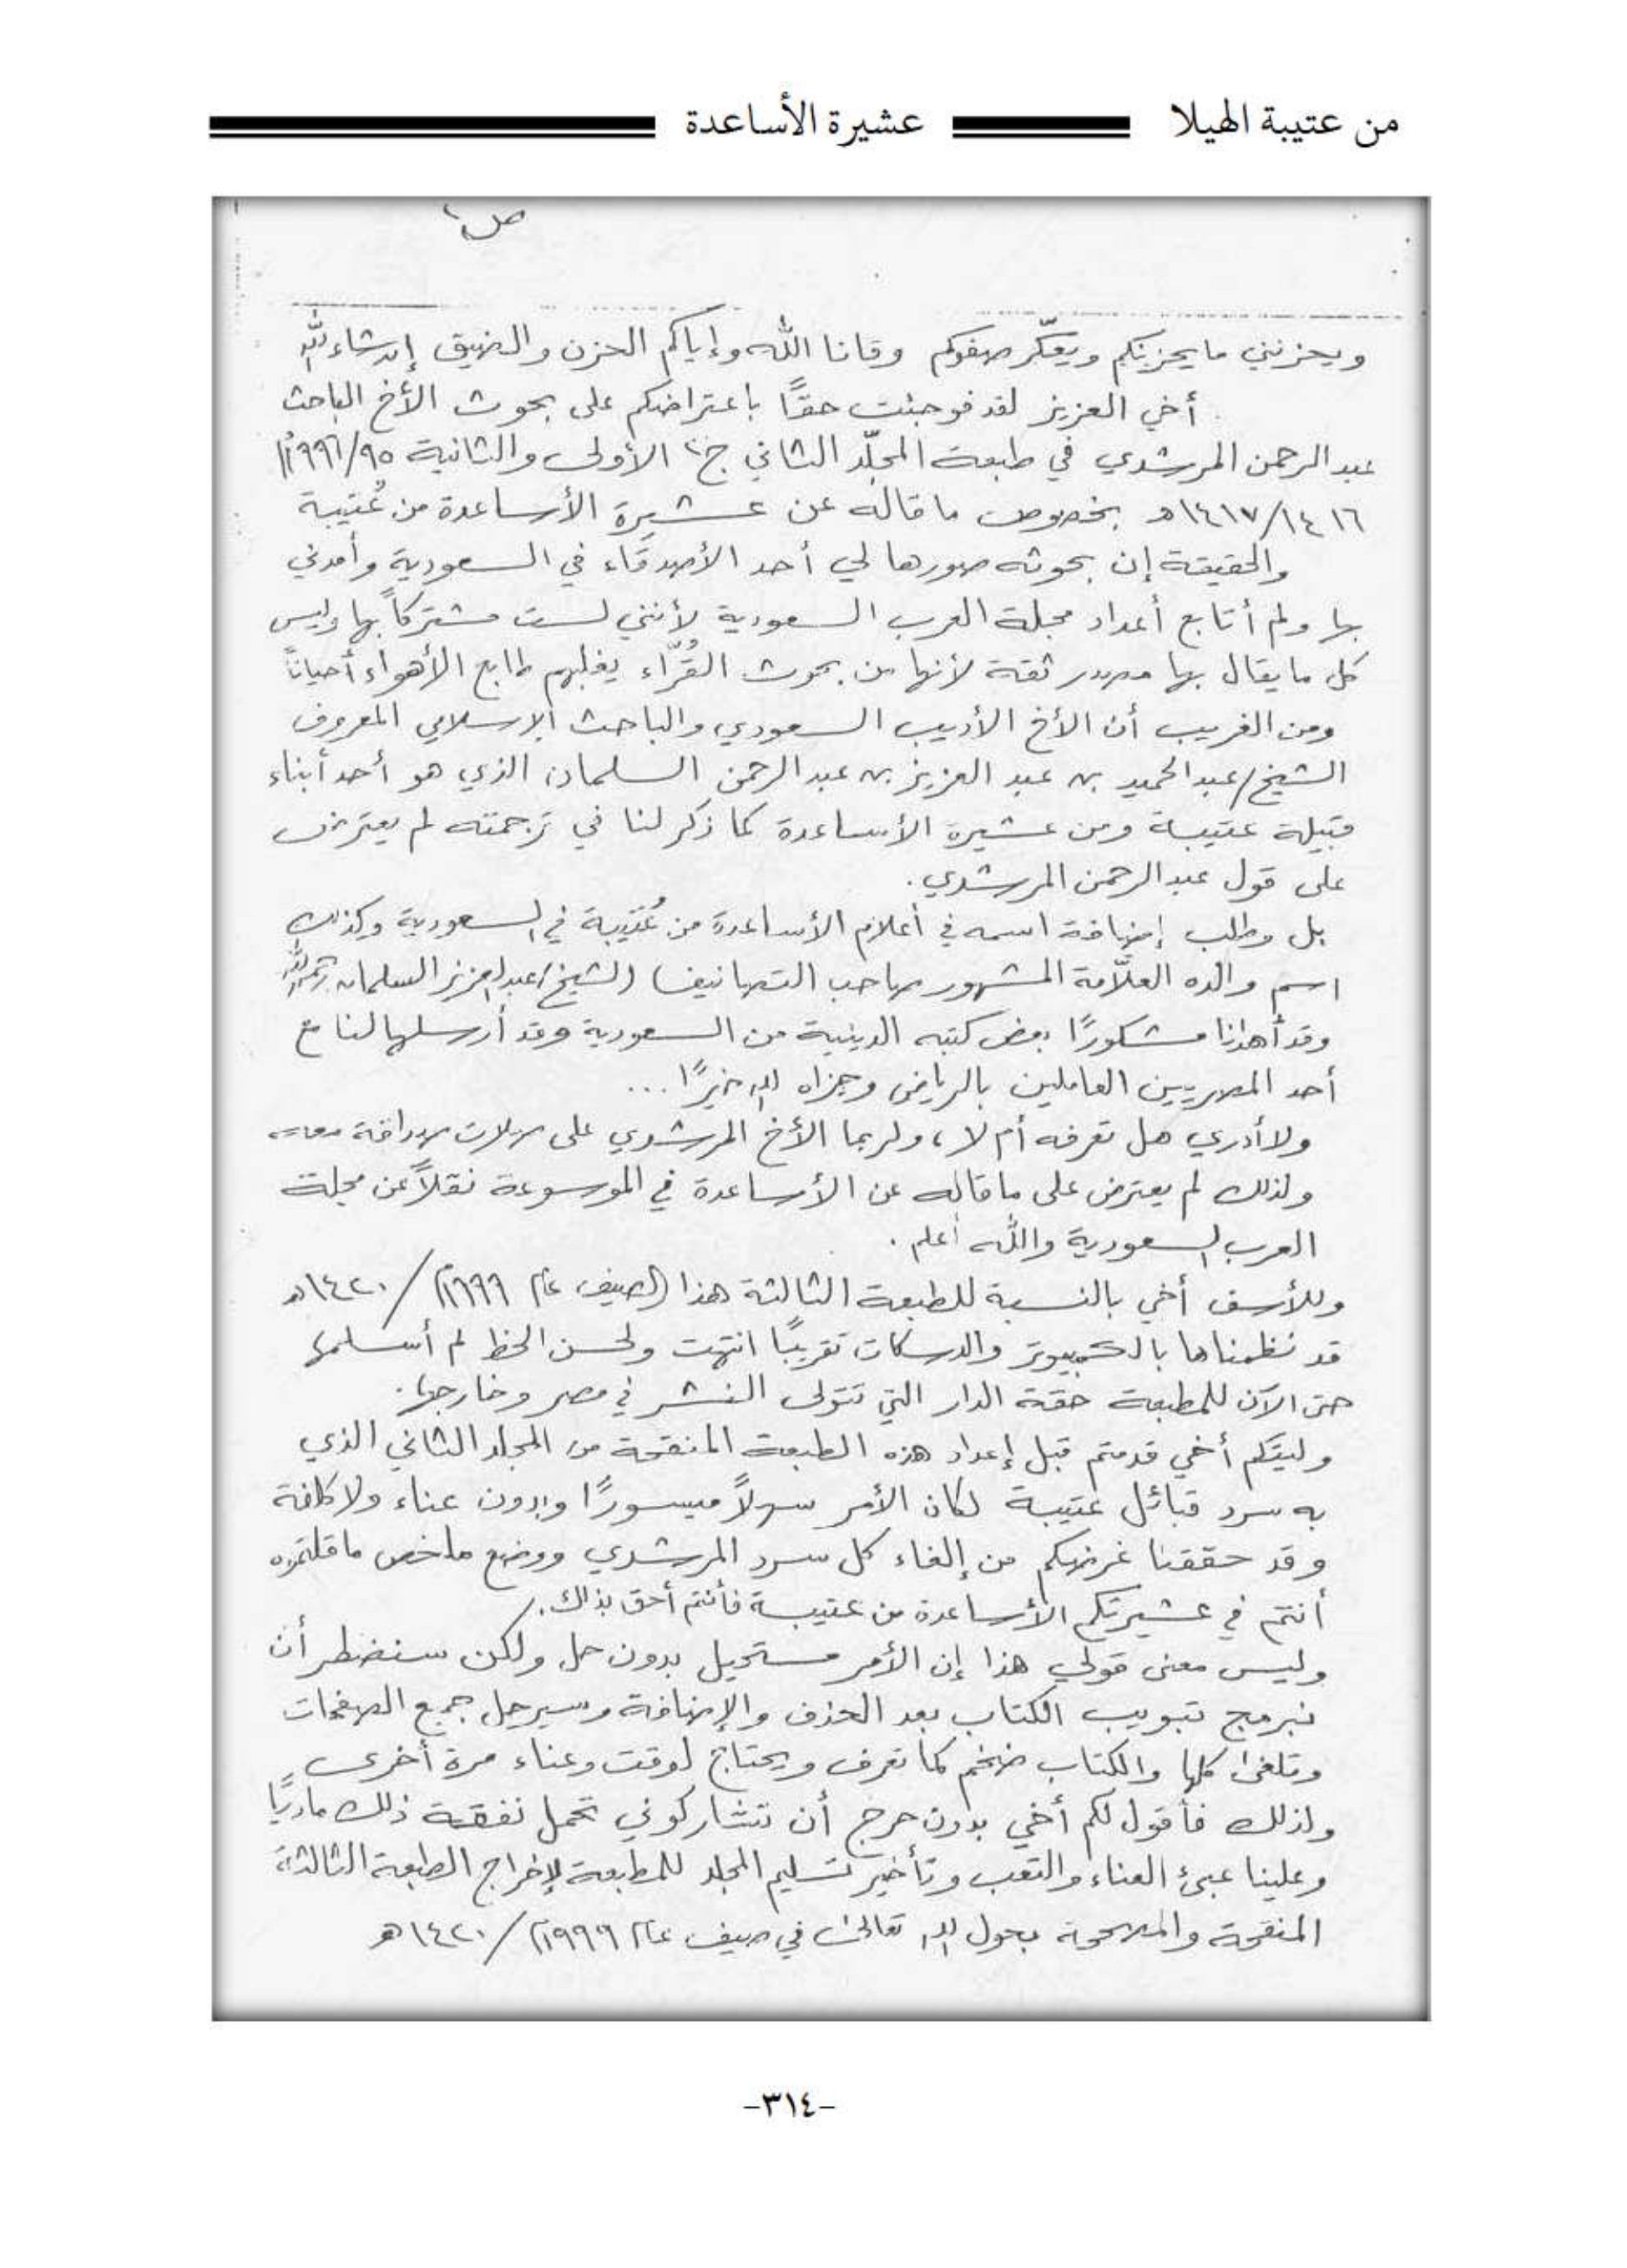 من عتيبة الهيلا عشيرة الأساعدة
ويحزنني ما يحزنكم ويعكّر صفوكم وقانا الله وإياكم الحزن والضيق إن شاء الله
أخي العزيز لقد فوجئت حقًّا باعتراضكم على بحوث الأخ الباحث
عبد الرحمن المرشدي في طبعة المجلّد الثاني ج٢ الأولى والثانية ١٩٩٦/٩٥م
١٤١٧/١٤١٦هـ بخصوص ما قاله عن عشيرة الأساعدة من عُتيبة
والحقيقة إن بحوثه صورها لي أحد الأصدقاء في السعودية وأمدني
بها ولم أتابع أعداد مجلة العرب السعودية لأنني لست مشتركاً بها وليس
كل ما يقال بها مصدر ثقة لأنها من بحوث القُرّاء يغلبهم طابع الأهواء أحياناً
ومن الغريب أن الأخ الأديب السعودي والباحث الإسلامي المعروف
الشيخ/عبد الحميد بن عبد العزيز بن عبد الرحمن السلمان الذي هو أحد أبناء
قبيلة عتيبة ومن عشيرة الأساعدة كما ذكر لنا في ترجمته لم يعترض
على قول عبد الرحمن المرشدي.
بل وطلب إضافة اسمه في أعلام الأساعدة من عُتيبة في السعودية وكذلك
اسم والده العلاّمة المشهور صاحب التصانيف (الشيخ/عبد العزيز السلمان رحمه الله
وقد أهدانا مشكورًا بعض كتبه الدينية من السعودية وقد أرسلها لنا مع
أحد المصريين العاملين بالرياض وجزاه الله خيرًا...
ولا أدري هل تعرفه أم لا، ولربما الأخ المرشدي على صلات صداقة معه
ولذلك لم يعترض على ما قاله عن الأساعدة في الموسوعة نقلاً عن مجلة
العرب السعودية والله أعلم.
وللأسف أخي بالنسبة للطبعة الثالثة هذا الصيف عام ١٩٩٩م/١٤٢٠هـ
قد نظمناها بالكمبيوتر والدسكات تقريبًا انتهت ولحسن الحظ لم أسلمها
حتى الآن للمطبعة حقة الدار التي تتولى النشر في مصر وخارجها.
وليتكم أخي قدمتم قبل إعداد هذه الطبعة المنقحة من المجلد الثاني الذي
به سرد قبائل عتيبة لكان الأمر سهلاً ميسورًا وبدون عناء ولا كلفة
وقد حققنا غرضكم من إلغاء كل سرد المرشدي ووضع ملخص ما قلتموه
أنتم في عشيرتكم الأساعدة من عتيبة فأنتم أحق بذلك.
وليس معنى قولي هذا إن الأمر مستحيل بدون حل ولكن سنضطر أن
نبرمج تبويب الكتاب بعد الحذف والإضافة وسيرحل جميع الصفحات
وتلغى كلها والكتاب ضخم كما تعرف ويحتاج لوقت وعناء مرة أخرى
ولذلك فأقول لكم أخي بدون حرج أن تتشاركوني تحمل نفقة ذلك ماديًا
وعلينا عبئ العناء والتعب وتأخير تسليم المجلد للمطبعة لإخراج الطبعة الثالثة
المنقحة والمصححة بحول الله تعالى في صيف عام ١٩٩٩م/١٤٢٠هـ
-٣١٤-